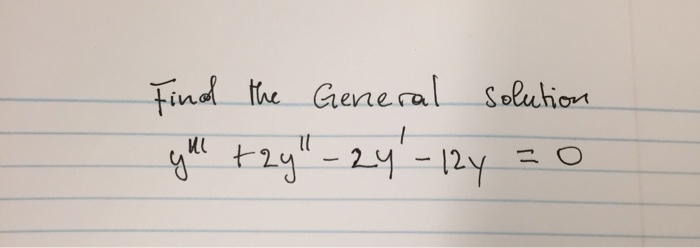 Find the General solution
y''' + 2y'' - 2y' - 12y = 0